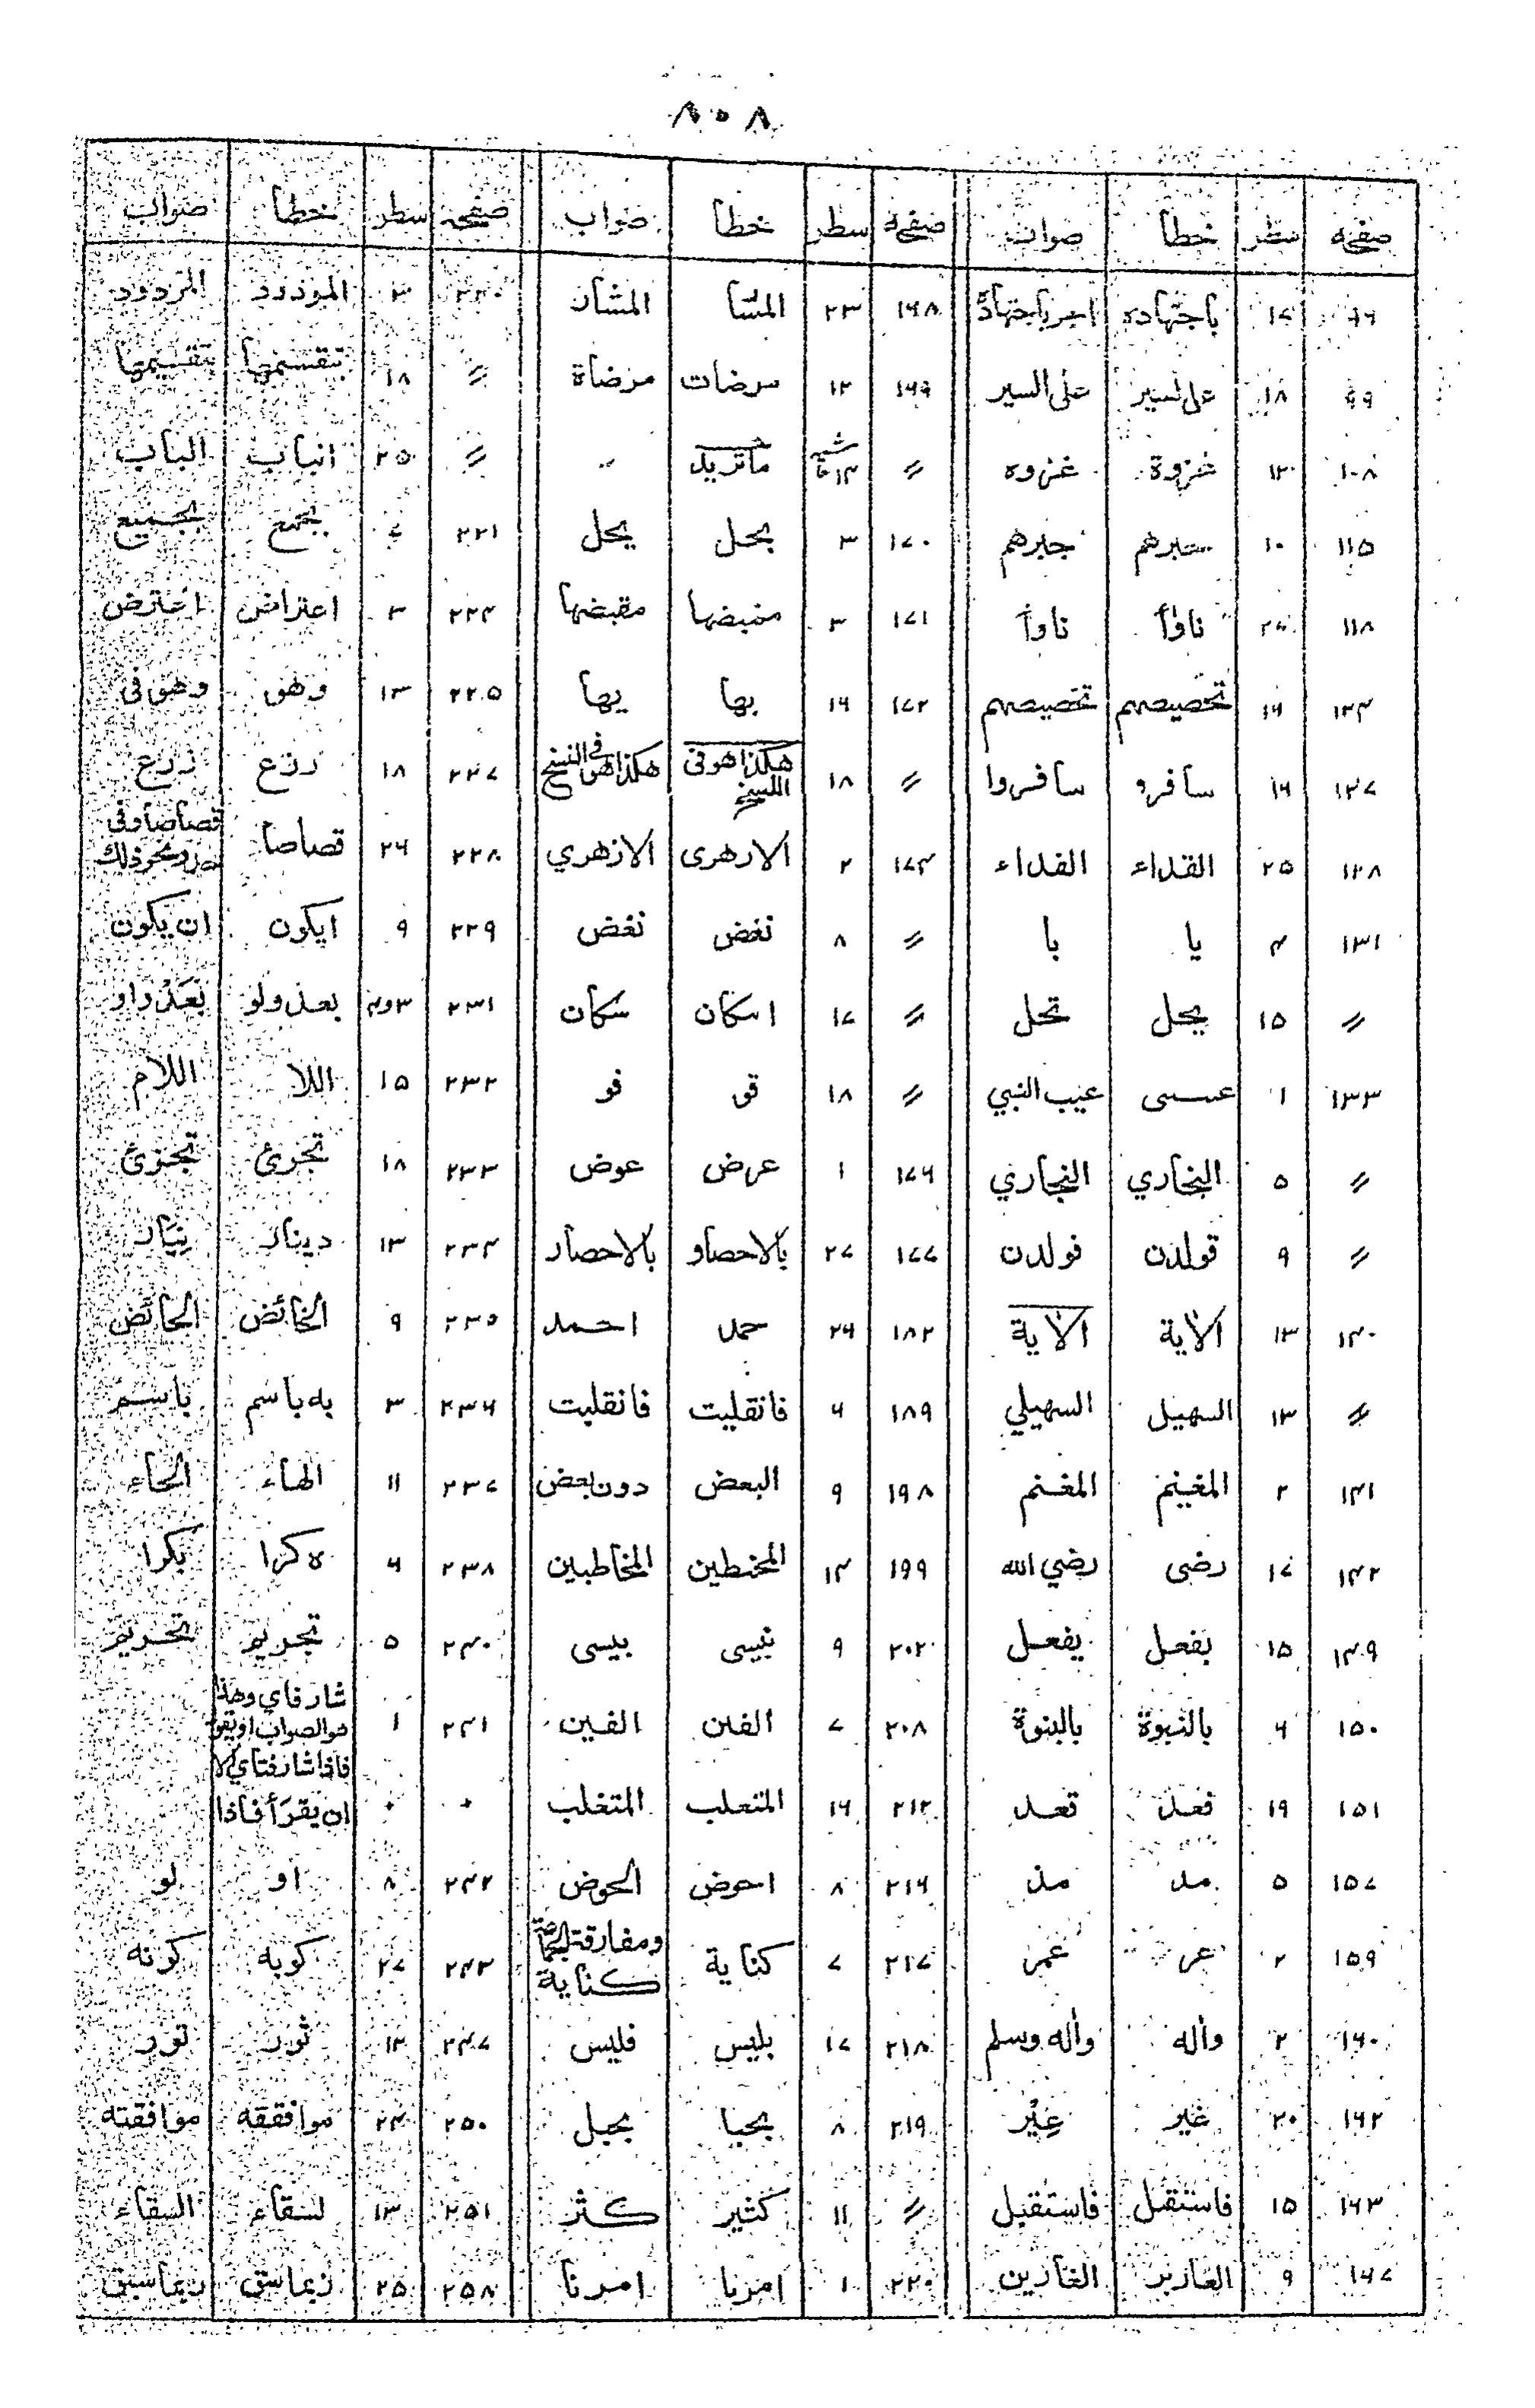 ٨٠٨
صفحه سطر خطأ صواب صفحه سطر خطأ صواب صفحه سطر خطأ صواب
٩٦ ١٧ باجتهاده اجر باجتهاده ١٦٨ ٢٣ المشا المشار ٢٢٠ ٣ الموذرد المردود
٩٩ ١٨ على لسير على السير ١٦٩ ١٢ مرضات مرضاة 〃 ١٨ بتقسمها بتقسيمها
١٠٨ ١٢ غزوة غزوه 〃 ١٤ حاشيه ماتريد 〃 ٢٥ انباب الباب
١١٥ ١٠ جبرهم ١٧٠ ٣ بحل يحل ٢٢١ ٧ بجمع بجميع
١١٨ ٢٤ ناوأ ناوأ ١٧١ ٣ منبضها مقبضها ٢٢٤ ٣ اعتراض اعترض
١٢٤ ١٦ تخصيصهم تخصيصهم ١٧٢ ١٦ بها يها ٢٢٥ ١٣ وهو وهو في
١٢٧ ١٦ سافرو سافروا 〃 ١٨ هكذا هو في اللسخ هكذا هو في النسخ ٢٢٧ ١٨ ررع زرع
١٢٨ ٢٥ القداء الفداء ١٧٤ ٢ الارهرى الازهري ٢٢٨ ٢٦ قصاصا قصاصا وفي ونحو ذلك
١٣١ ٤ يا با 〃 ٨ نغض نغض ٢٢٩ ٩ ايكون ان يكون
〃 ١٥ يحل تحل 〃 ١٧ اسكان سكان ٢٣١ ٣و٤ بعد ولو بعد داو
١٣٣ ١ عسى عيب النبي 〃 ١٨ قو فو ٢٣٢ ١٥ اللا اللام
〃 ٥ البخاري النجاري ١٧٦ ١ عرض عوض ٢٣٣ ١٨ تجرئ تجزئ
〃 ٩ قولدن فولدن ١٧٧ ٢٧ بالاحصاو بالاحصار ٢٣٤ ١٣ دينار
١٤٠ ١٣ الأية الأية ١٨٢ ٢٦ حمد احمد ٢٣٥ ٩ الخائض الحائض
〃 ١٣ السهيل السهيلي ١٨٩ ٦ فانقليت فانقلبت ٢٣٦ ٣ به باسم باسم
١٤١ ٢ المغينم المغنم ١٩٨ ٩ البعض دون بعض ٢٣٧ ١١ الهاء الحاء
١٤٢ ١٧ رضى رضي الله ١٩٩ ١٤ المخطبين المخاطبين ٢٣٨ ٦ ة كرا بكرا
١٤٩ ١٥ بفعل يفعل ٢٠٢ ٩ نيسى بيسى ٢٤٠ ٥ تجريم تحريم
١٥٠ ٦ بالنبوة بالبنوة ٢٠٨ ٧ الفىن الفين ٢٤١ ١ شارفاي وهذا هو الصواب او يقو فاذا شارفتاي الا
١٥١ ١٩ فعد تعد ٢١٢ ١٦ المتعلب المتغلب ٠ ٠ ان يقرأ فاذا
١٥٧ ٥ مد مذ ٢١٦ ٨ احوض الحوض ٢٤٢ ٨ او لو
١٥٩ ٢ عر عمر ٢١٧ ٧ كناية ومفارقة الجماعة كناية ٢٤٣ ٢٧ كوبه كونه
١٦٠ ٢ وأله وأله وسلم ٢١٨ ١٧ بليس فليس ٢٤٧ ١٢ ثور تور
١٦٢ ٢٠ غير غير ٢١٩ ٨ بحبا بحبل ٢٥٠ ٢٤ موافققه موافقته
١٦٣ ١٥ فاستنقبل فاستقبل 〃 ١١ كثير كثر ٢٥١ ١٣ لسقاء السقاء
١٦٧ ٩ الغازير الغازين ٢٢٠ ١ امربا امرنا ٢٥٨ ٢٥